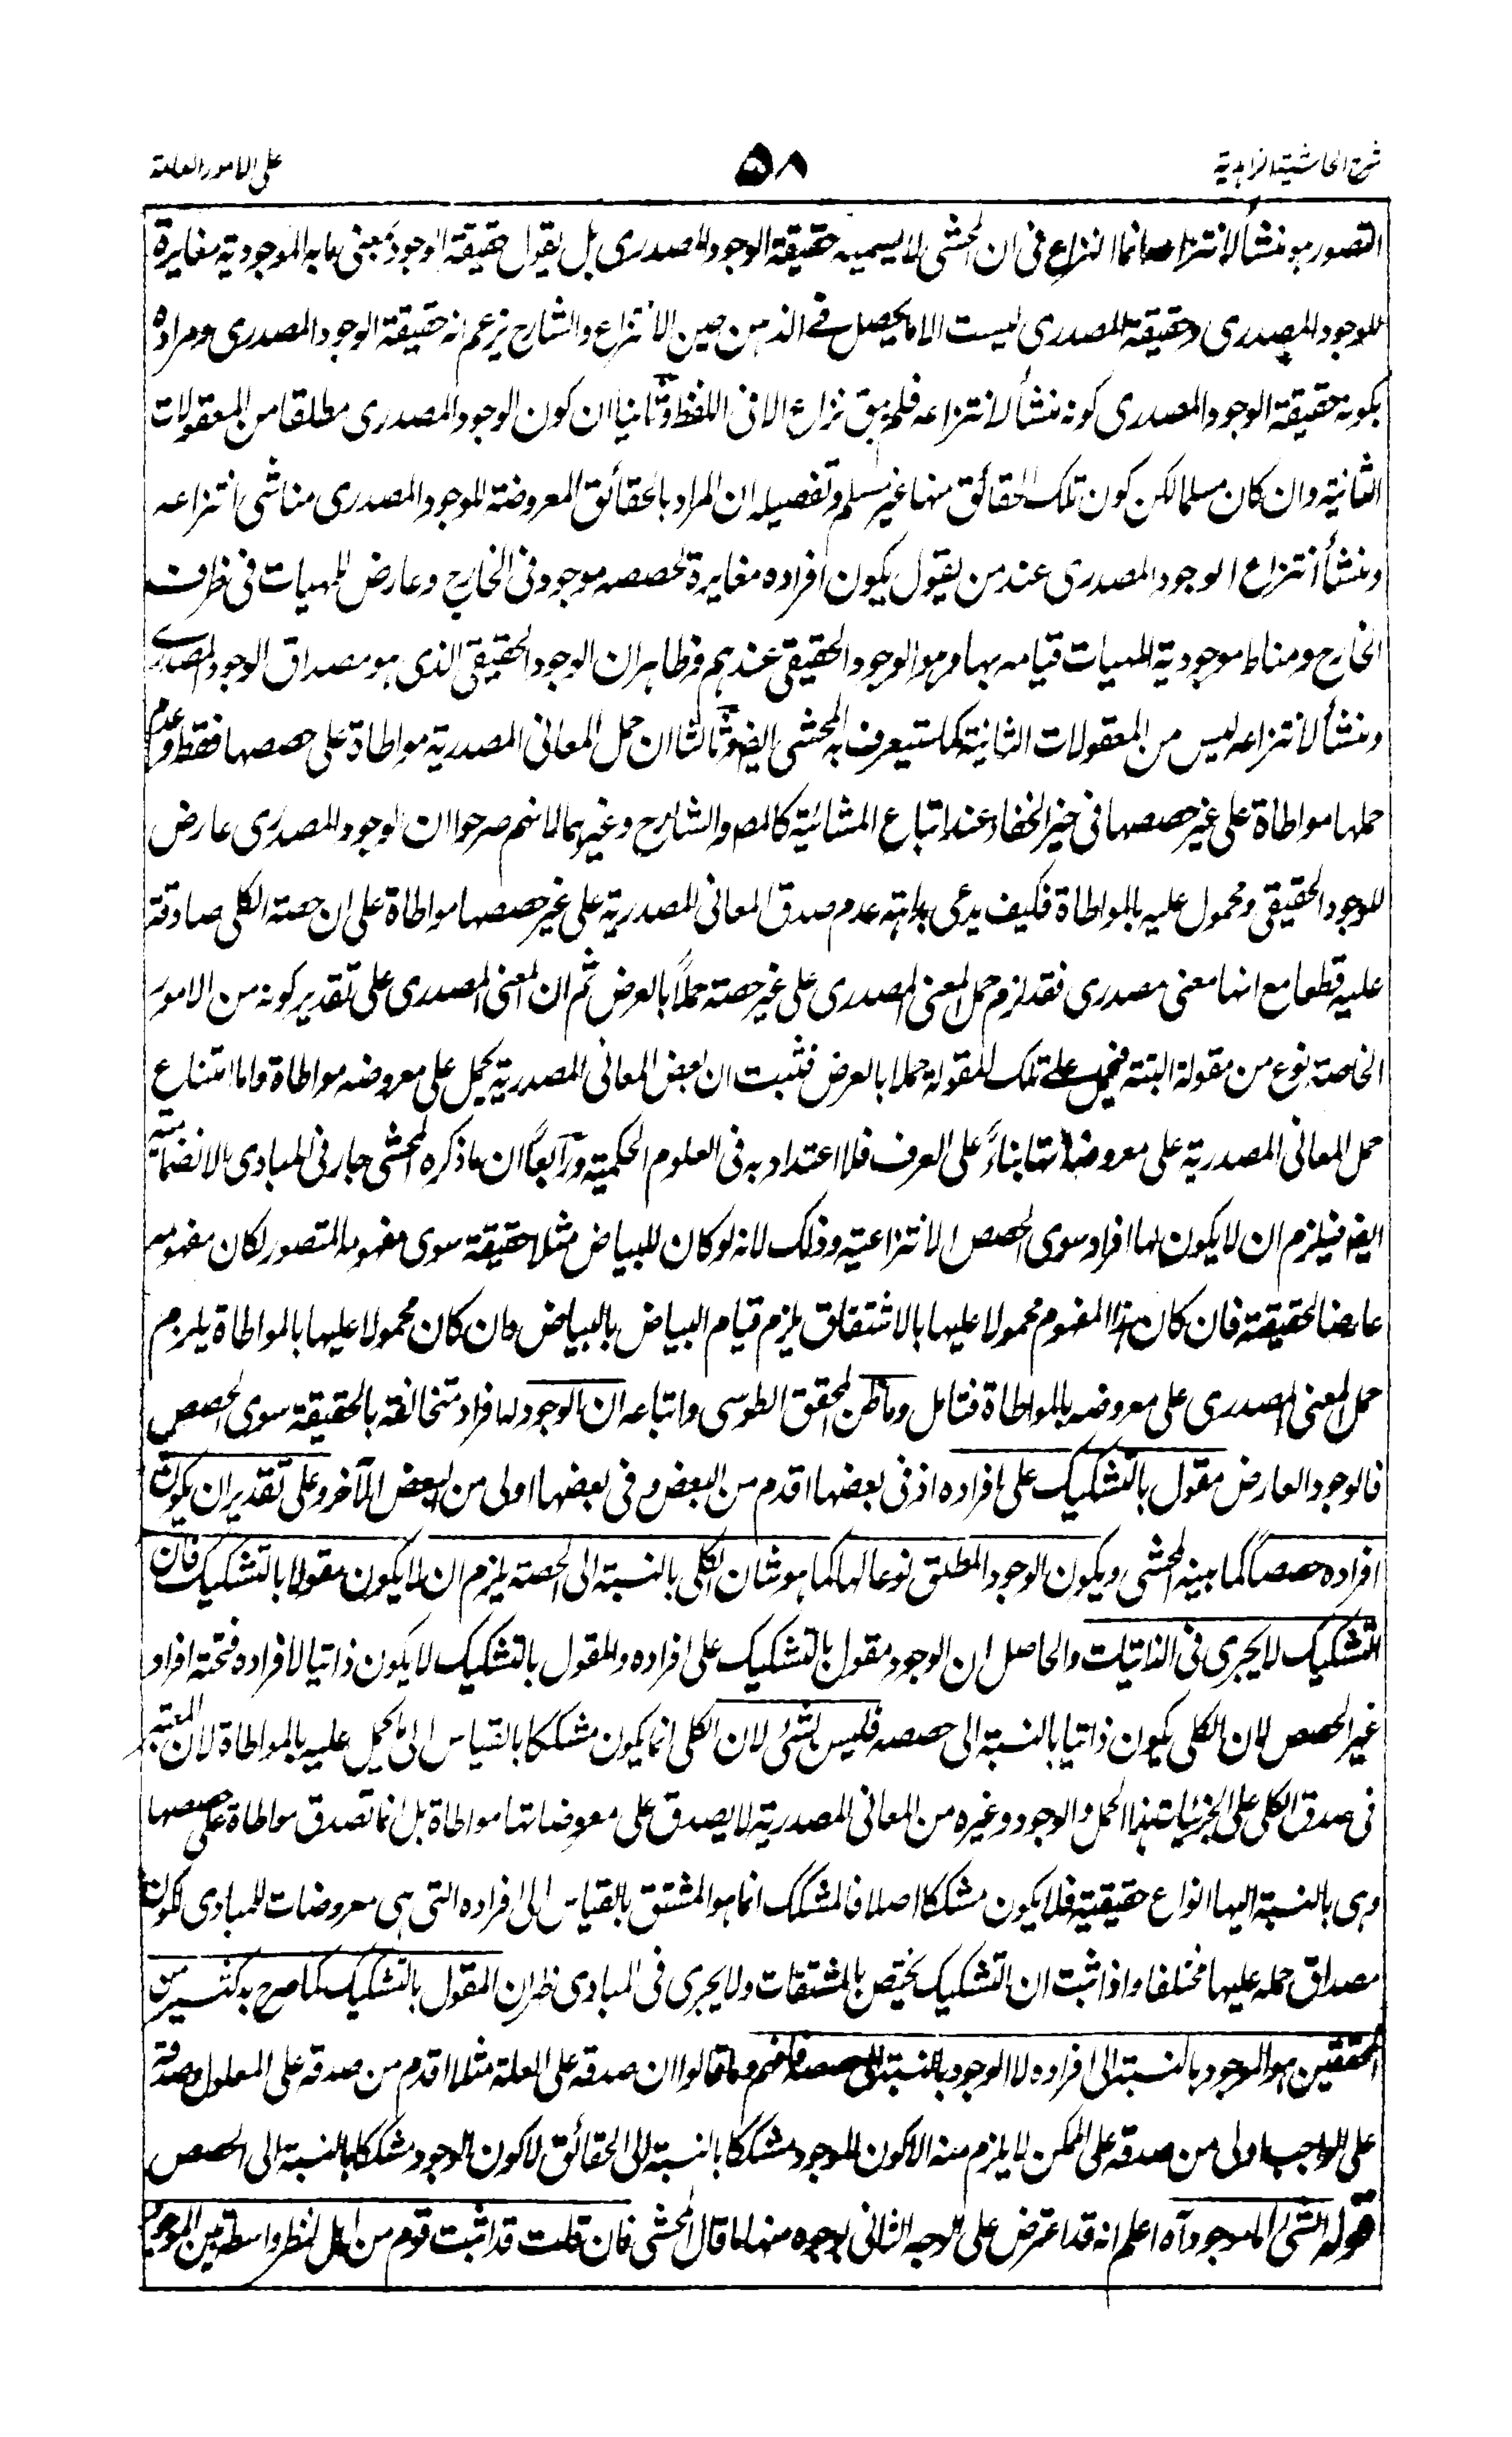 شرح الحاشية الزاهدية
٥٨
على الامور العامة
التصور هو منشأ لانتزاعه انما النزاع فى ان المحشى لا يسميه حقيقة الوجود المصدرى بل يقول حقيقة الوجود بمعنى ما به الموجودية مغايرة
للوجود المصدرى وحقيقة المصدرى ليست الا ما يحصل فى الذهن حين الانتزاع والشارح يزعم انه حقيقة الوجود المصدرى ومراده
بكونه حقيقة الوجود المصدرى كونه منشأ لانتزاعه فلم يبق نزاع الا فى اللفظ وثانيا ان كون الوجود المصدرى مطلقا من المعقولات
الثانية وان كان مسلما لكن كون تلك الحقائق منها غير مسلم وتفصيله ان المراد بالحقائق المعروضة للوجود المصدرى مناشى انتزاعه
ومنشأ انتزاع الوجود المصدرى عند من يقول بكون افراده مغايرة لحصصه موجود فى الخارج وعارض للمهيات فى ظرف
الخارج ومناط موجودية المهيات قيامه بها وهو الوجود الحقيقى عندهم وظاهر ان الوجود الحقيقى الذى هو مصداق الوجود المصدرى
ومنشأ لانتزاعه ليس من المعقولات الثانية كما ستيعرف به المحشى ايضا وثالثا ان حمل المعانى المصدرية مواطاة على حصصها فقط وعدم
حملها مواطاة على غير حصصها فى حيز الخفاء عند اتباع المشائية كالمص والشارح وغيرهما لانهم صرحوا ان الوجود المصدرى عارض
للوجود الحقيقى ومحمول عليه بالمواطاة فكيف يدعى بداهة عدم صدق المعانى المصدرية على غير حصصها مواطاة على ان حصة الكلى صادقة
عليه قطعا مع انها معنى مصدرى فقد لزم حمل المعنى المصدرى على غير حصته حملاً بالعرض ثم ان المعنى المصدرى على تقدير كونه من الامور
الخاصة نوع من مقولة البتة فيحمل عليه تلك المقولة حملا بالعرض فثبت ان بعض المعانى المصدرية يحمل على معروضه مواطاة واما امتناع
حمل المعانى المصدرية على معروضاتها بناءً على العرف فلا اعتداد به فى العلوم الحكمية ورابعاً ان ما ذكره المحشى جار فى المبادى الانضمامية
ايضا فيلزم ان لا يكون لها افراد سوى الحصص الانتزاعية وذلك لانه لو كان للبياض مثلا حقيقة سوى مفهومه المتصور لكان مفهومه
عارضا لحقيقته فان كان هذا المفهوم محمولا عليها بالاشتقاق يلزم قيام البياض بالبياض وان كان محمولا عليها بالمواطاة يلزم
حمل المعنى المصدرى على معروضه بالمواطاة فتامل وما ظن المحقق الطوسى واتباعه ان الوجود له افراد متخالفة بالحقيقة سوى الحصص
فالوجود العارض مقول بالتشكيك على افراده اذ فى بعضها اقدم من البعض وفى بعضها اولى من البعض الآخر وعلى تقدير ان يكون
افراده حصصاً كما بينه المحشى ويكون الوجود المطلق نوعا لها كما هو شان الكلى بالنسبة الى الحصة يلزم ان لا يكون مقولا بالتشكيك فان
التشكيك لا يجرى فى الذاتيات والحاصل ان الوجود مقول بالتشكيك على افراده والمقول بالتشكيك لا يكون ذاتيا لافراده فثمة افراد
غير الحصص لان الكلى يكون ذاتيا بالنسبة الى حصصه فليس بشئ لان الكلى انما يكون مشككا بالقياس الى ما يحمل عليه بالمواطاة لان المعتبر
فى صدق الكلى على الجزئيات هذا الحمل والوجود وغيره من المعانى المصدرية لا يصدق على معروضاتها مواطاة بل انما تصدق مواطاة على حصصها
وهى بالنسبة اليها انواع حقيقية فلا يكون مشككا اصلا فالمشكك انما هو المشتق بالقياس الى افراده التى هى معروضات للمبادى لكون
مصداق حمله عليها مختلفا واذا ثبت ان التشكيك يختص بالمشتقات ولا يجرى فى المبادى ظهر ان المقول بالتشكيك كما صرح به كثير من
المحققين هو الموجود بالنسبة الى افراده لا الوجود بالنسبة الى حصصه فافهم وما قالوا ان صدقه على العلة مثلا اقدم من صدقه على المعلول وصدقه
على الواجب اولى من صدقه على الممكن لا يلزم منه الا كون الموجود مشككا بالنسبة الى الحقائق لا كون الوجود مشككا بالنسبة الى الحصص
قوله الشئ اما موجود آه اعلم انه قد اعترض على الوجه الثانى بوجوه منها ما قال المحشى فان قلت قد اثبت قوم من اهل النظر واسطة بين الموجود